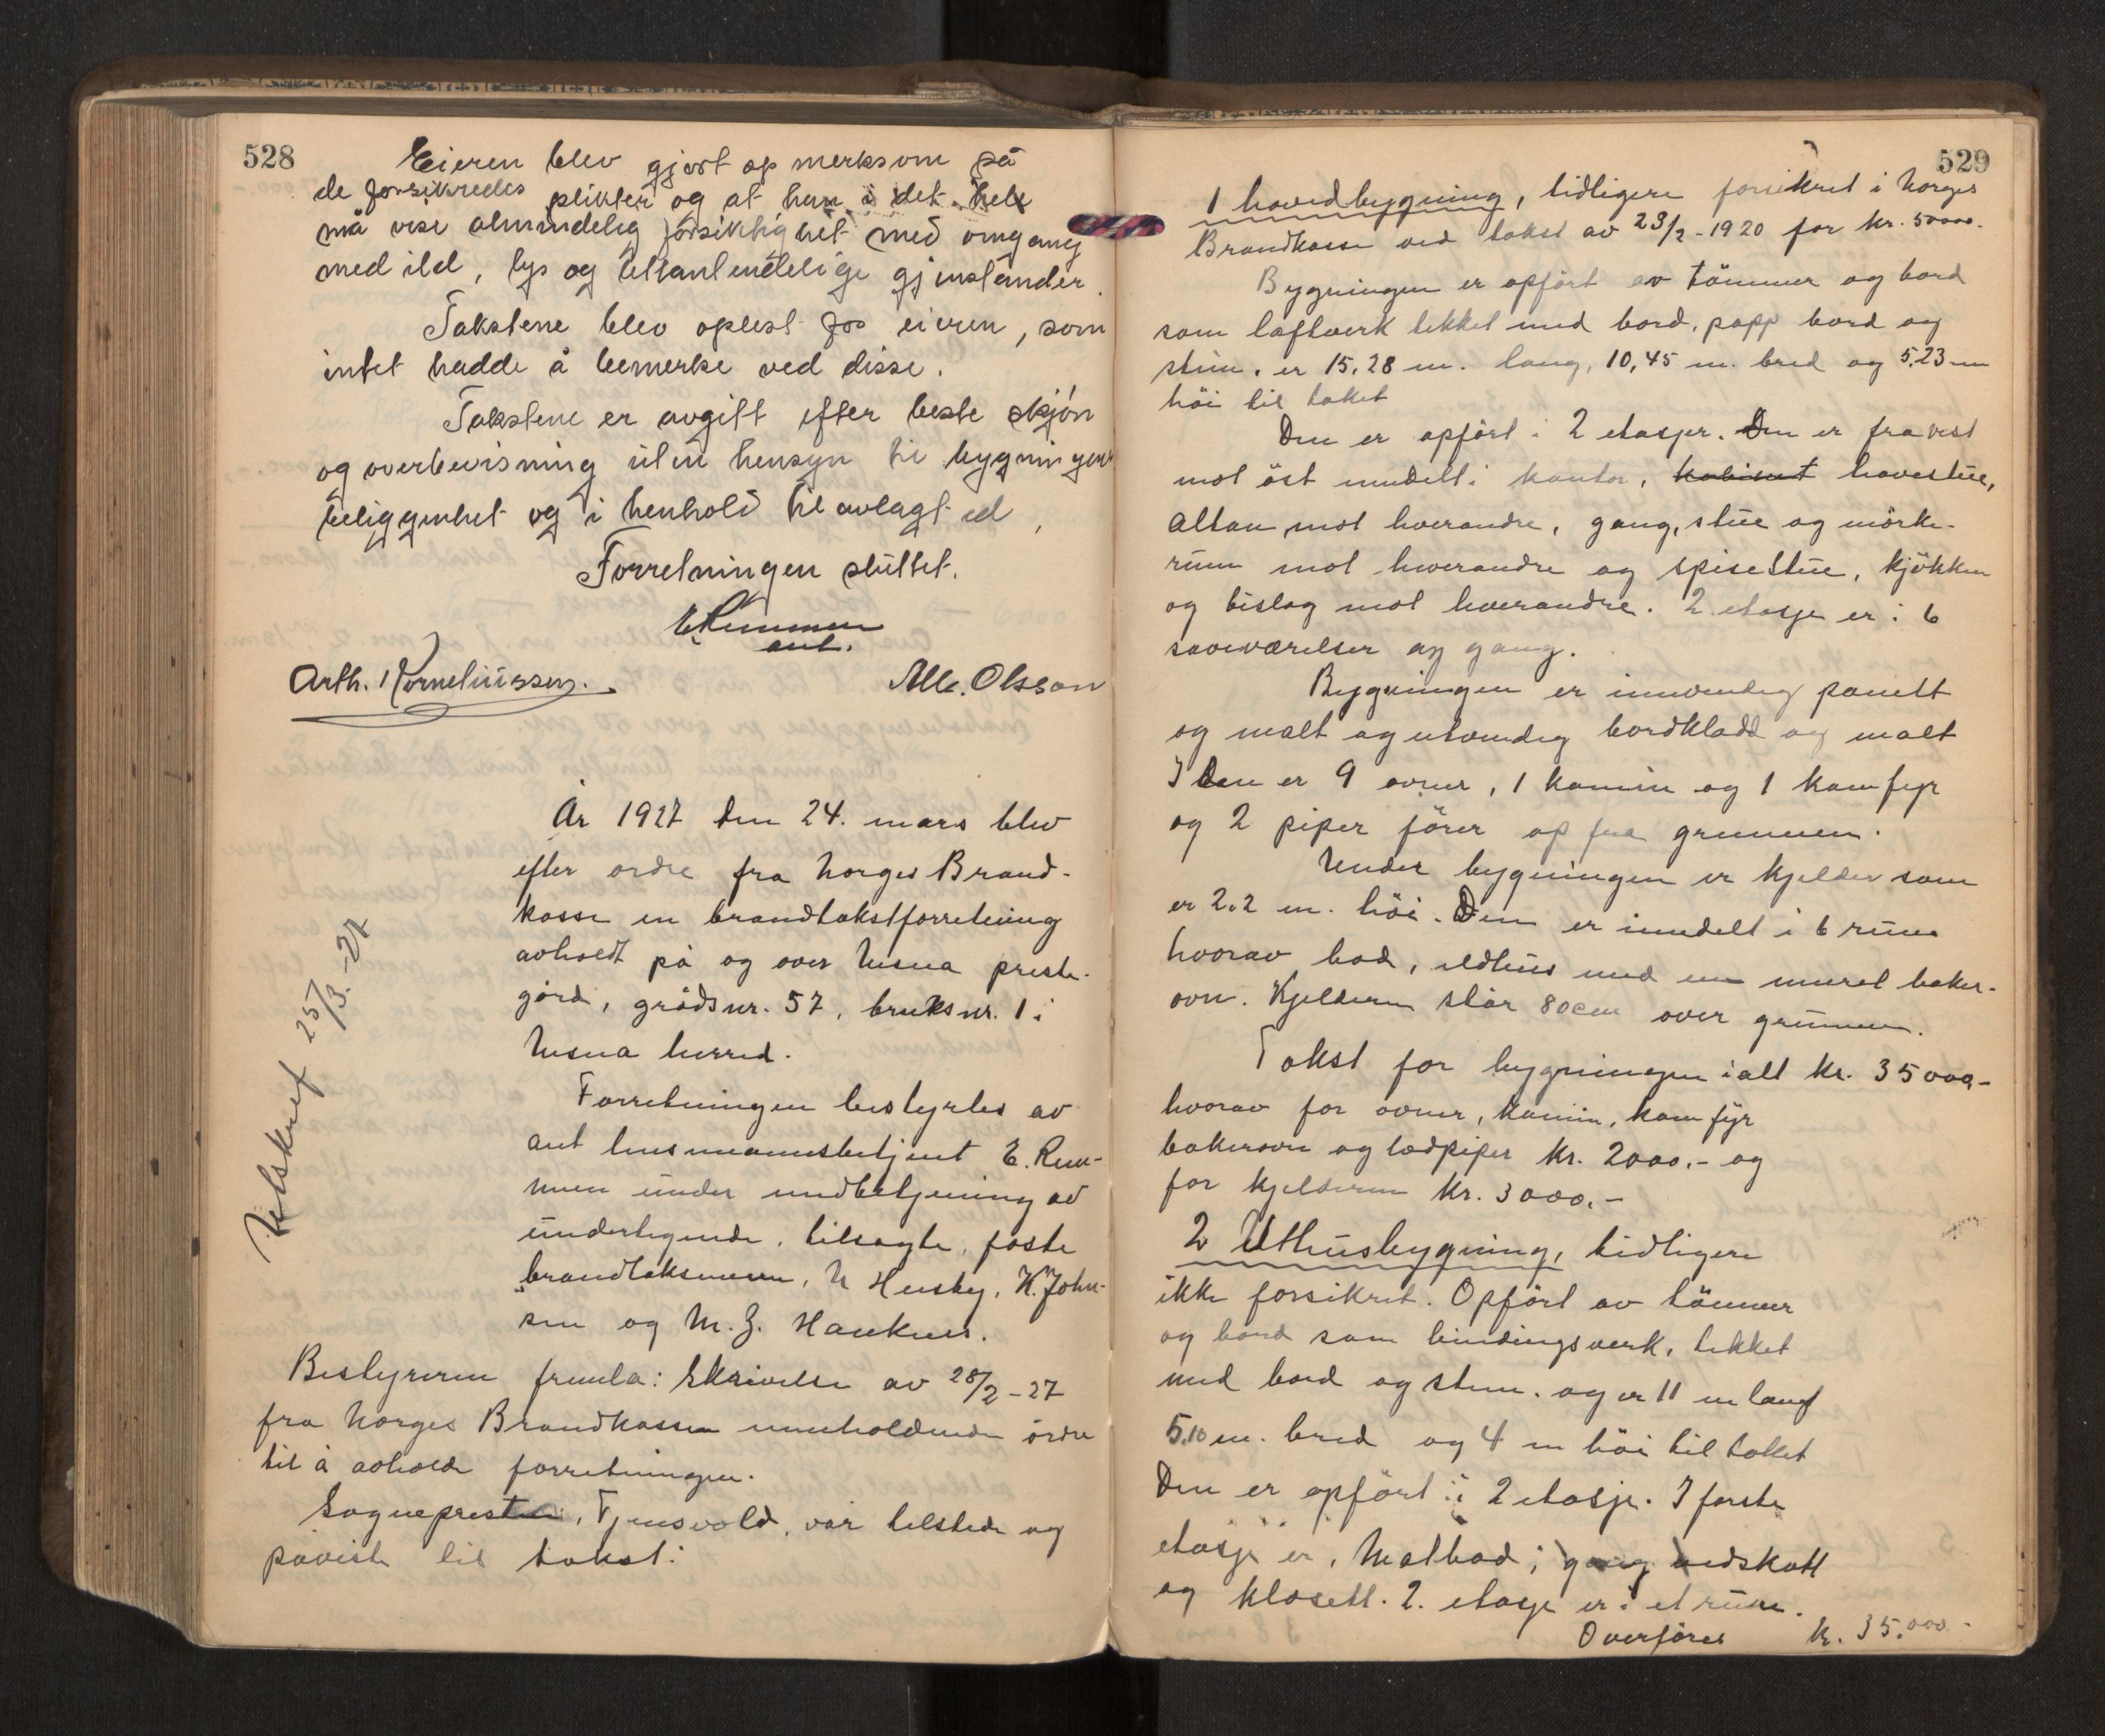 528
Eieren blev gjort op merksom på
de forsikredes plikter og at han i det hele
må vise almindelig forsiktighet med omgang
med ild, lys og lettantendelige gjenstander.
Takstene blev oplest for eieren, som
intet hadde å bemerke ved disse.
Takstene er avgitt efter beste skjøn
og overbevisning uten hensyn til bygningens
beliggenhet og i henhold til avlagt ed,
Forretningen sluttet.
E Remmen
ant.
Arth. Korneliussen. Alb. Olsson
År 1927 den 24. mars blev
efter ordre fra Norges Brand-
kasse en brandtakstforretning
avholdt på og over Nesna preste-
gård, gråds nr. 57, bruks nr. 1 i
Nesna herred.
Forretningen bestyrtes av
ant lensmannsbetjent E. Rem-
men under medbetjening av
undertegnede, tilsagte, faste
brandtaksmenn, N Husby, K. John-
sen og M. Z. Hauknes.
Utskrif 25/3.-27
Bestyreren fremla: Skrivelse av 28/2-27
fra Norges Brandkasse inneholdende ordre
til å avholde forretningen.
Sogneprest, Tjensvold, var tilstede og
påviste til takst:
529
1 hovedbygning, tidligere forsikret i Norges
Brandkasse ved takst av 23/2-1920 for kr. 50000.
Bygningen er opført av tömmer og bord
som laftverk tekket med bord, papp bord og
sten, er 15,28 m. lang, 10,45 m. bred og 5,23 m
höi til taket
Den er opført i 2 etasjer. Den er fra vest
mot öst inndelt i kontor, kabinet havestue,
altan mot hverandre, gang, stue og mörke-
rum mot hverandre og spisestue, kjökken
og bislag mot hverandre. 2. etasje er i 6
soveværelser og gang.
Bygningen er innvendig panelt
og malt og utvendig bordkladd og malt
I den er 9 ovner, 1 kamin og 1 komfyr
og 2 piper förer op fra grunnen.
Under bygningen er kjelder som
er 2.2 m. höi. Den er inndelt i 6 rum
hvorav bad, ildhus med en muret baker-
ovn. Kjelderen står 80 cm over grunnen.
Takst for bygningen ialt kr. 35000,-
hvorav for ovner, kamin, komfyr
bakerovn og lodpiper kr. 2000.- og
for kjelderen kr. 3000.-
2 Uthusbygning, tidligere
ikke forsikret. Opfört av tömmer
og bord som bindingsverk, tekket
med bord og sten. og er 11 m lang
5.10 m. bred og 4 m höi til taket
Den er opfört i 2 etasje. I forste
etasje er, Matbod; gang vedskott
og klosett. 2. etasje er i et rum.
Overföres kr. 35.000-